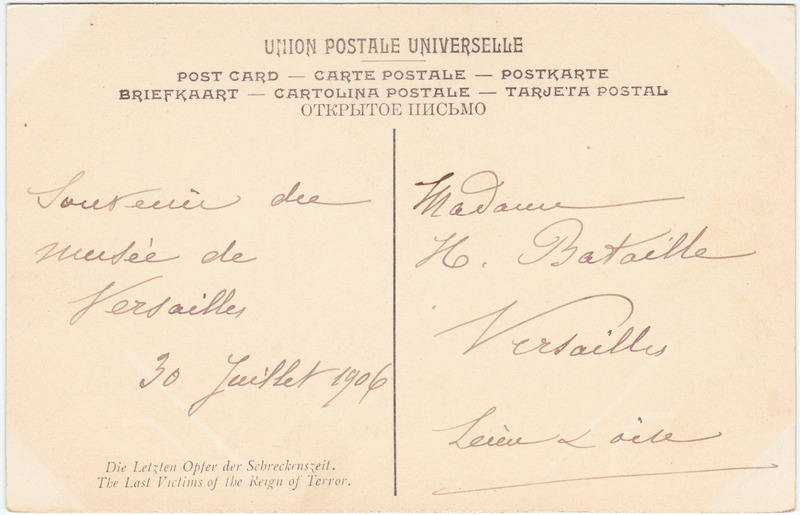 UNION POSTALE UNIVERSELLE
POST CARD — CARTE POSTALE — POSTKARTE
BRIEFKAART — CARTOLINA POSTALE — TARJETA POSTAL
ОТКРЫТОЕ ПИСЬМО
Souvenir du
musée de
Versailles
30 Juillet 1906
Die Letzten Opfer der Schreckenszeit.
The Last Victims of the Reign of Terror.
Madame
H. Bataille
Versailles
& Oise